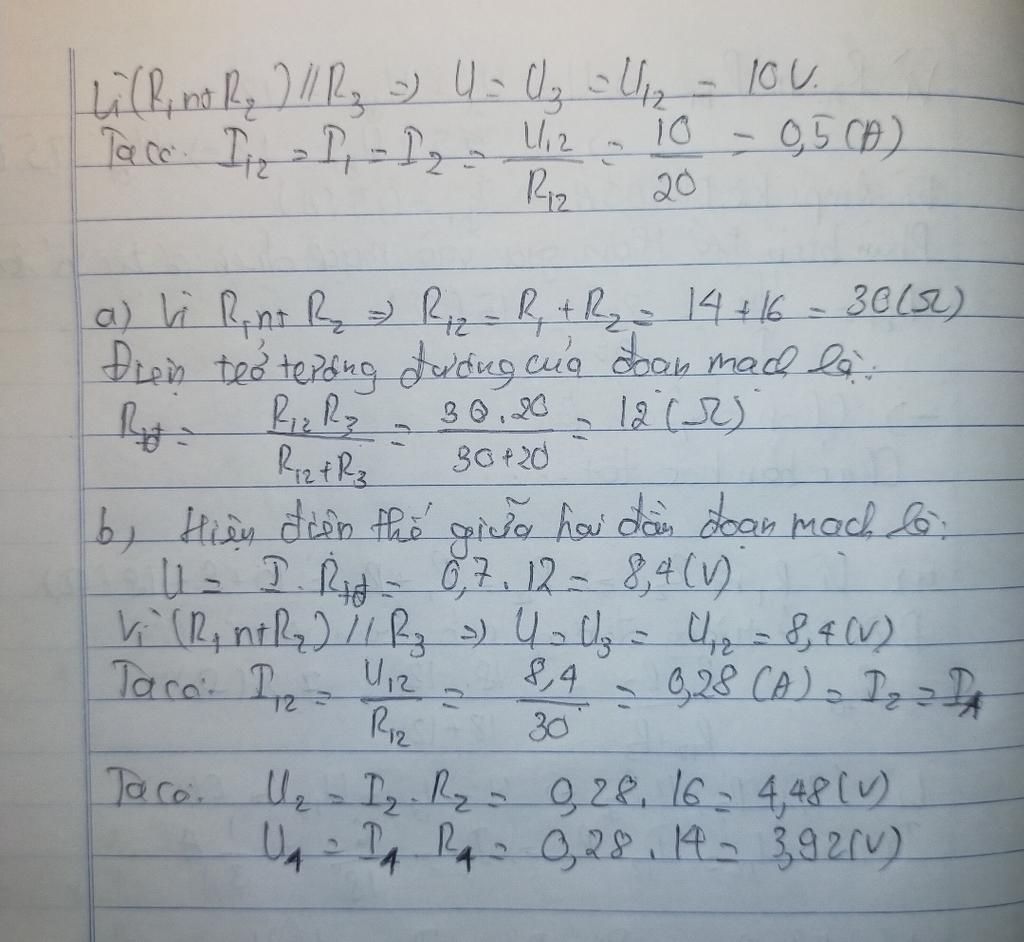 Vì (R₁ nt R₂) // R₃ => U = U₃ = U₁₂ = 10V.
Ta có: I₁₂ = I₁ = I₂ = U₁₂/R₁₂ = 10/20 = 0,5 (A)
a) Vì R₁ nt R₂ => R₁₂ = R₁ + R₂ = 14 + 16 = 30 (Ω)
Điện trở tương đương của đoạn mạch là:
Rtđ = R₁₂ R₃/R₁₂ + R₃ = 30.20/30+20 = 12 (Ω)
b, Hiệu điện thế giữa hai đầu đoạn mạch là:
U = I . Rtđ = 0,7 . 12 = 8,4 (V)
Vì (R₁ nt R₂) // R₃ => U = U₃ = U₁₂ = 8,4 (V)
Ta có: I₁₂ = U₁₂/R₁₂ = 8,4/30 = 0,28 (A) = I₂ = I₁
Ta có: U₂ = I₂ . R₂ = 0,28 . 16 = 4,48 (V)
U₁ = I₁ . R₁ = 0,28 . 14 = 3,92 (V)